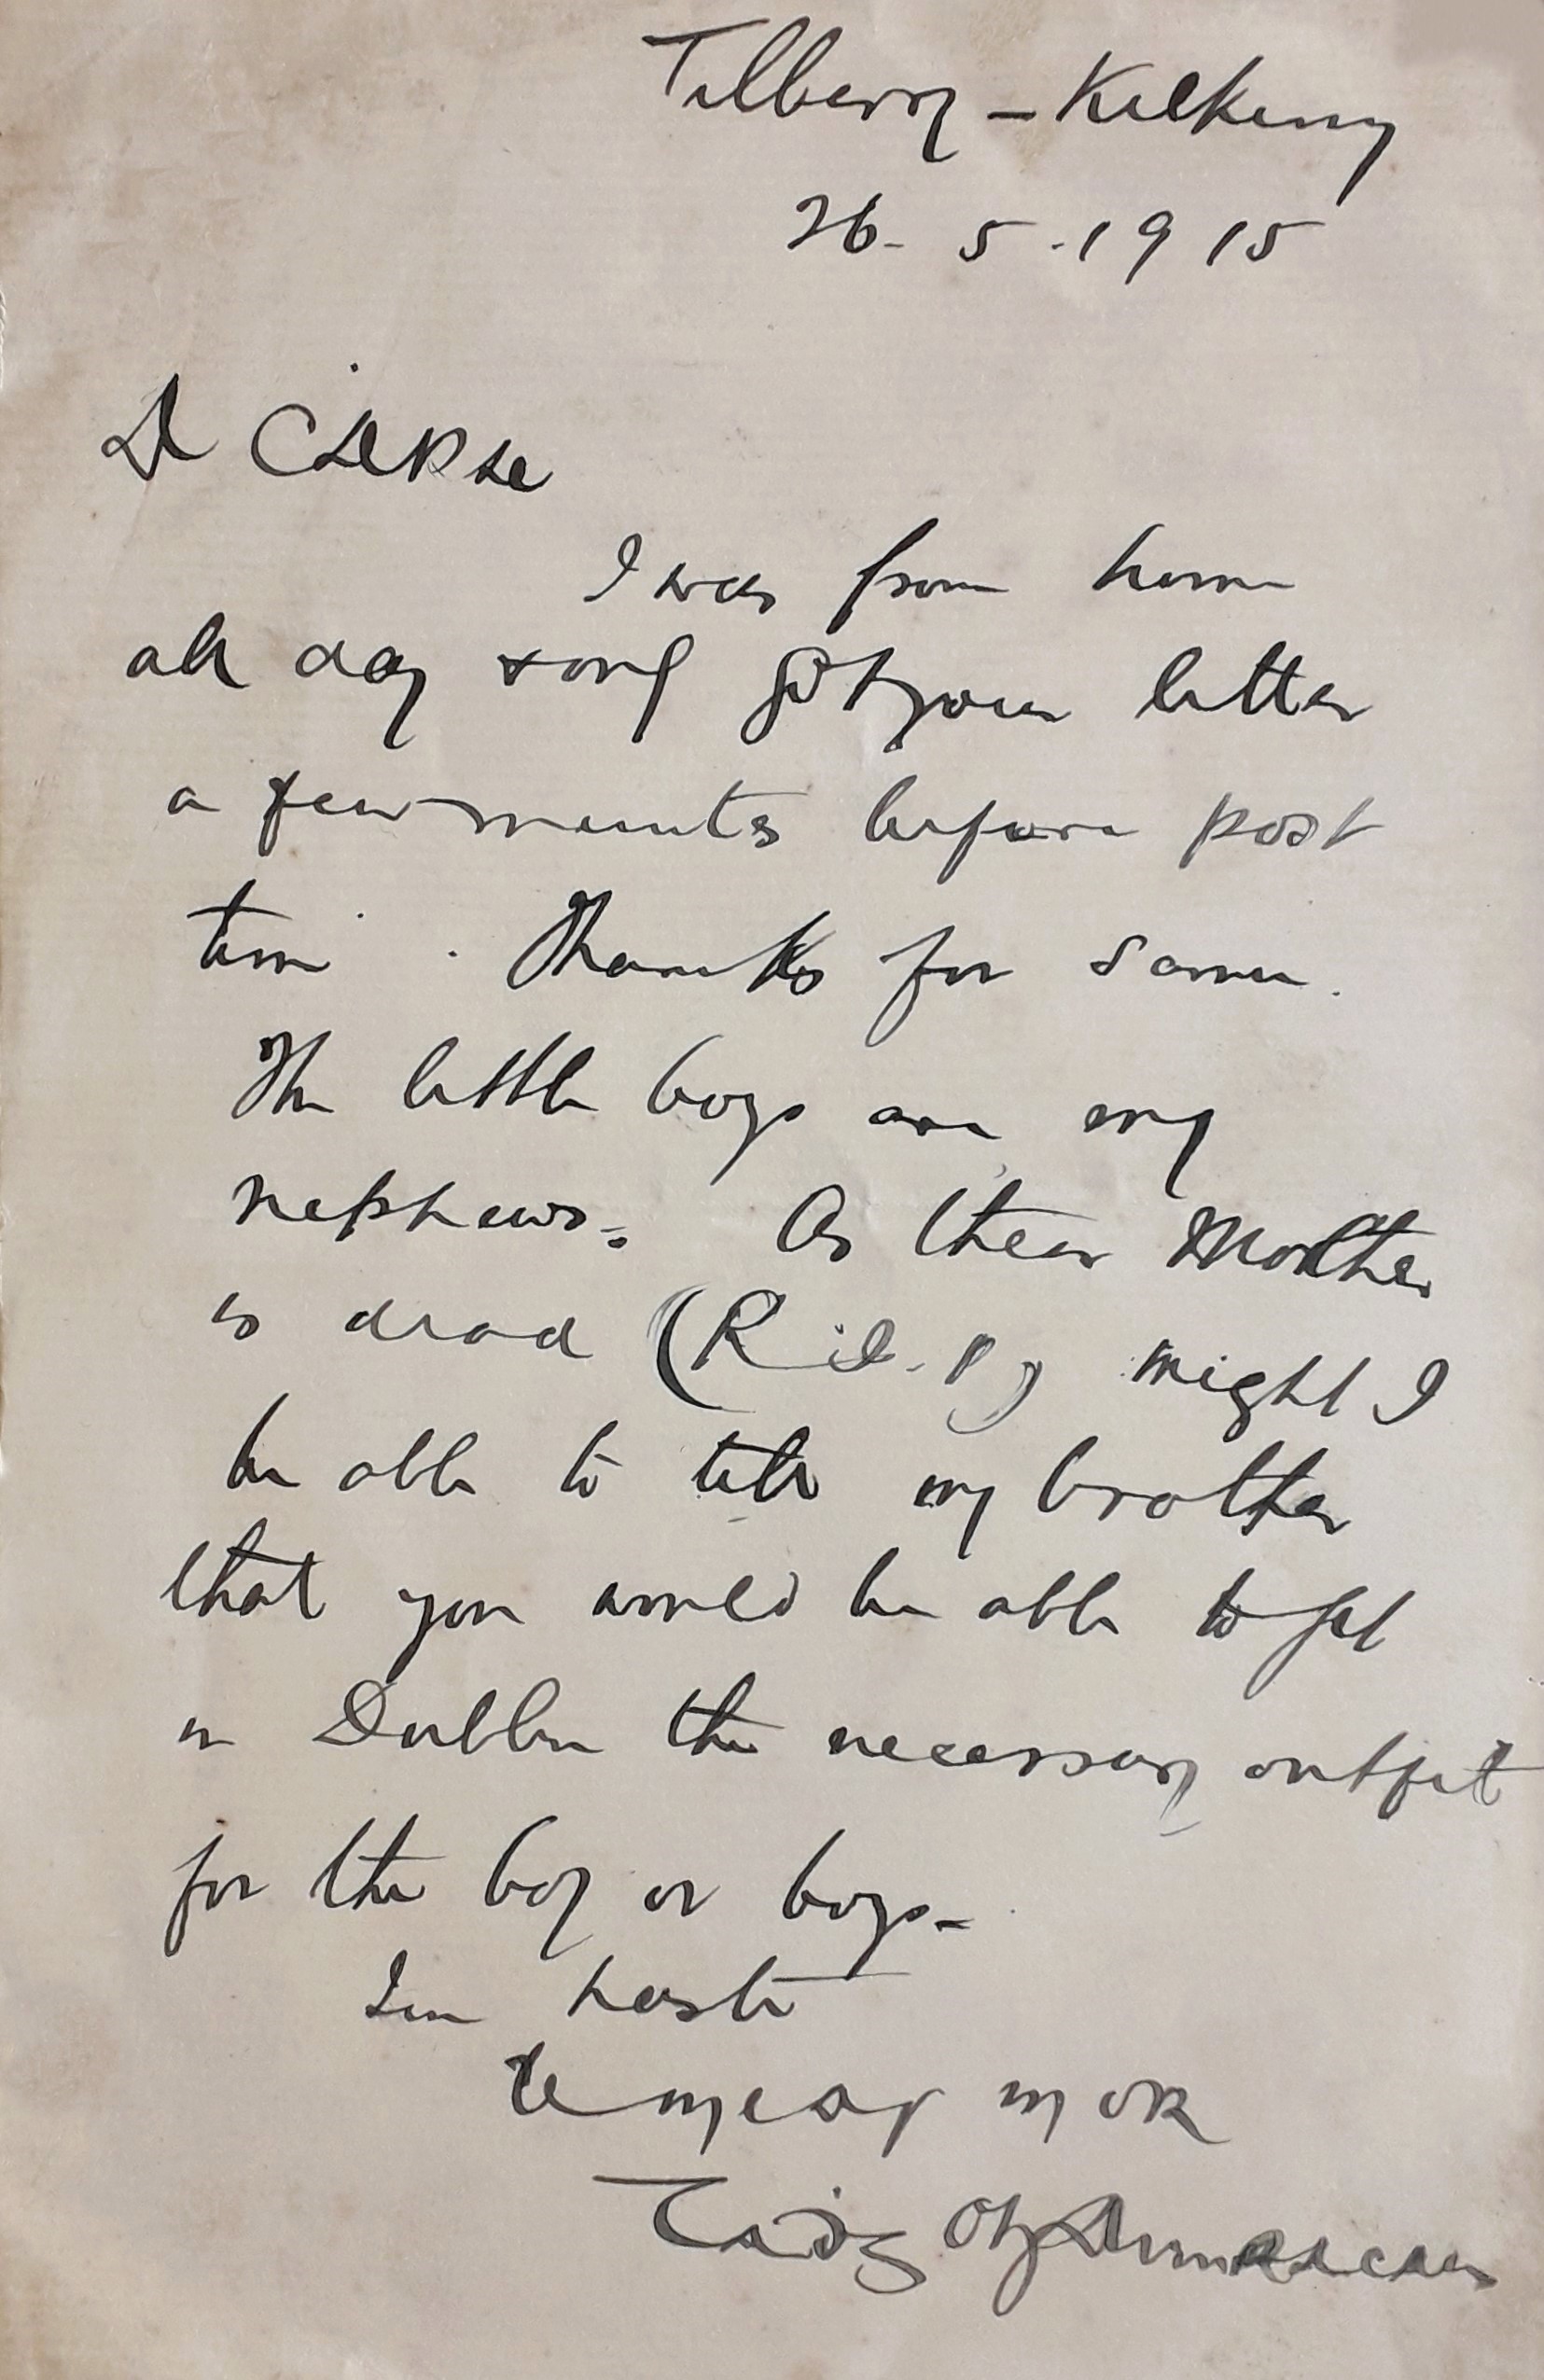 Kilkenny
26-5-1915
A
I was from home
all day & only got your letter
a few minutes before post
time. Thanks for same.
The little boys are my
nephews. As their Mother
is dead (R.I.P) might I
be able to tell my brother
that you would be able to get
in Dublin the necessary outfit
for the boy or boys -
In haste
le meas mór
Taidg